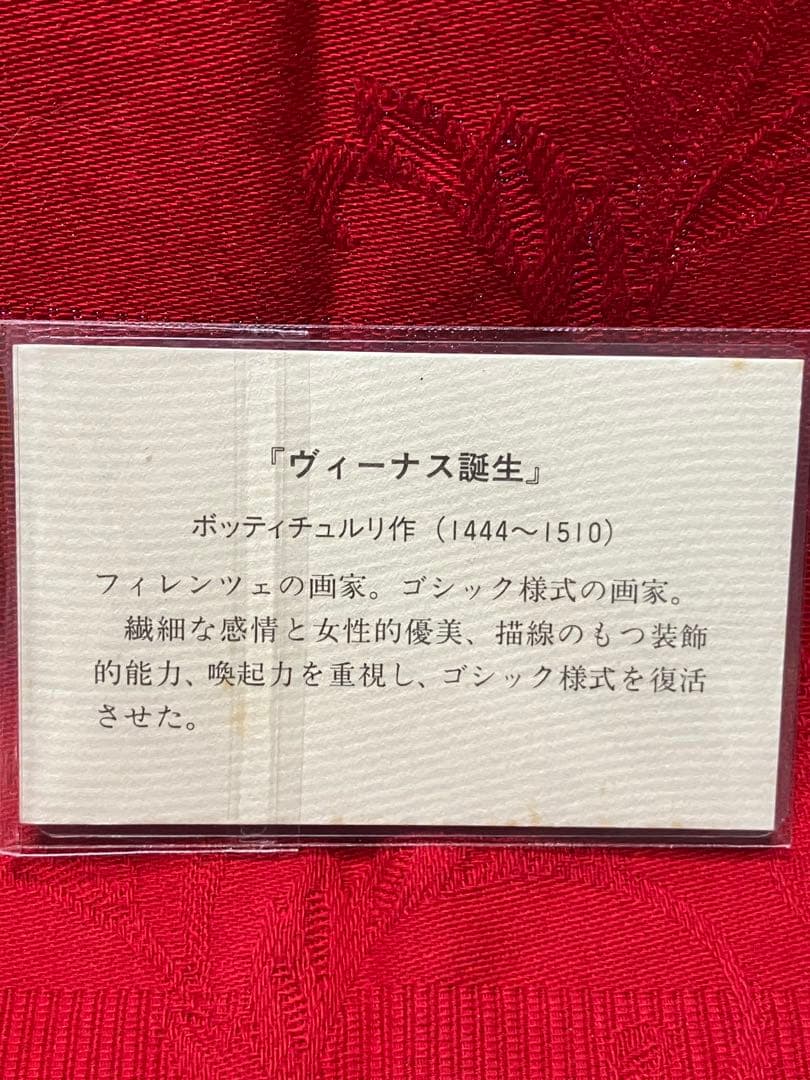 『ヴィーナス誕生』
ボッティチュルリ作（1444〜1510）
フィレンツェの画家。ゴシック様式の画家。
繊細な感情と女性的優美、描線のもつ装飾
的能力、喚起力を重視し、ゴシック様式を復活
させた。